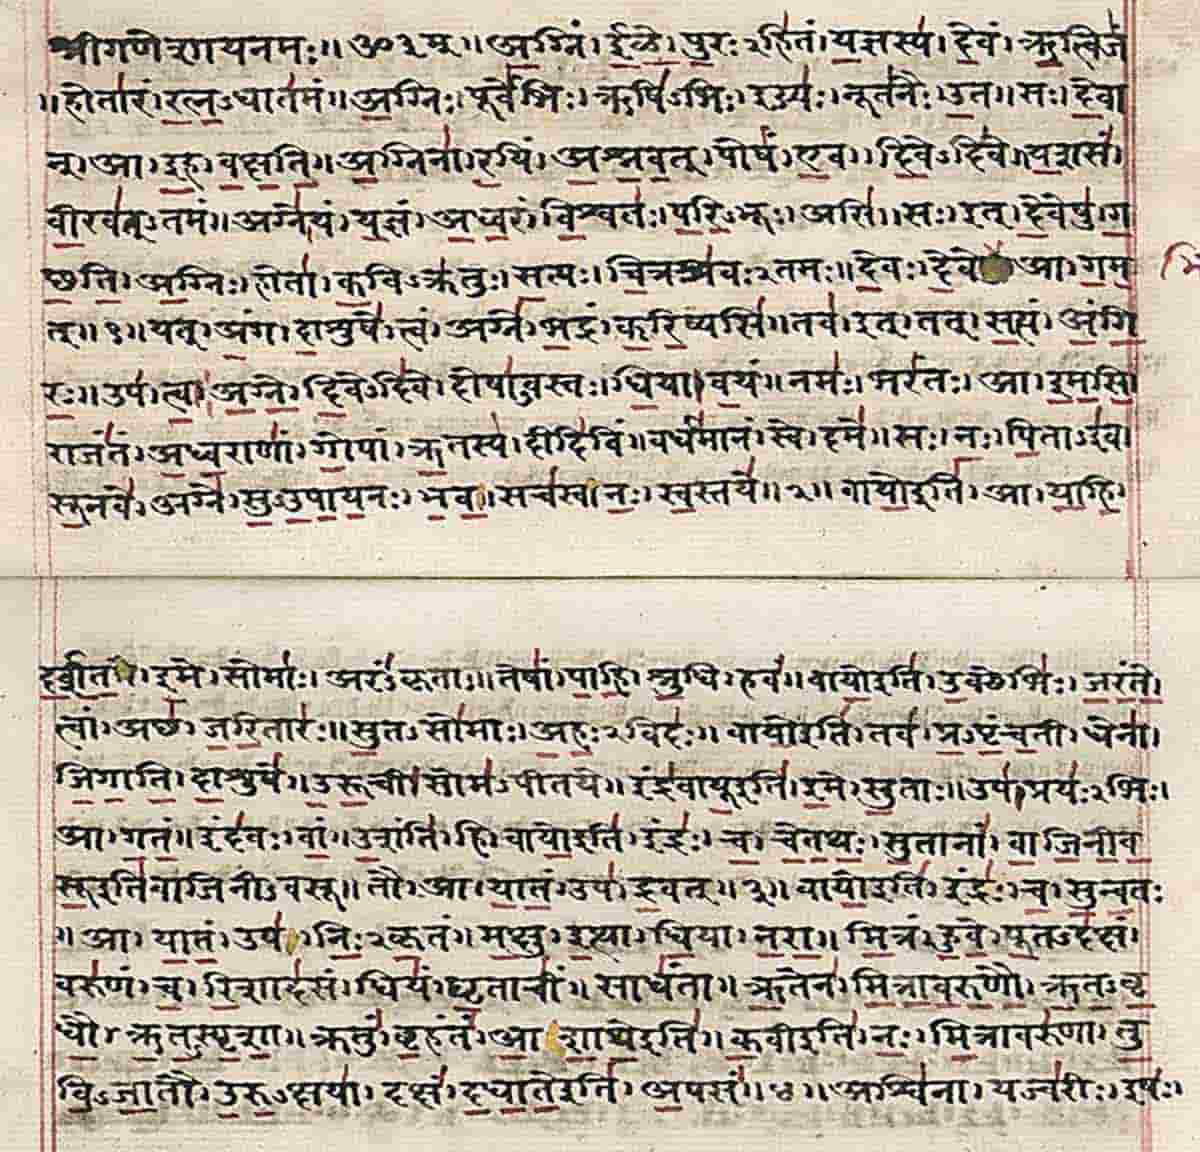 श्रीगणेशायनमः॥ॐ३म्॥अग्निं।ईळे।पुरःऽहितं।यज्ञस्य।देवं।ऋत्विजं
॥होतारं।रत्नऽधातमं॥अग्निः।पूर्वेभिः।ऋषिऽभिः।ईड्यः।नूतनैः।उत॥सः।देवा
न्।आ।इह।वक्षति॥अग्निना।रयिं।अश्नवत्।पोषं।एव।दिवेऽदिवे॥यशसं
वीरवत्ऽतमं॥अग्ने।यं।यज्ञं।अध्वरं।विश्वतः।परिऽभूः।असि।सः।इत्।देवेषु।ग
छति।अग्निः।होता।कविऽक्रतुः।सत्यः।चित्रश्रवःऽतमः॥देवः।देवे आ।गम
त्॥१॥यत्।अंग।दाशुषे।त्वं।अग्ने।भद्रं।करिष्यसि॥तव।इत्।तत्।सत्यं।अंगि
रः॥उप।त्वा।अग्ने।दिवेऽदिवे।दोषाऽवस्तः।धिया।वयं॥नमः।भरंतः।आ।इमसि
राजंतं।अध्वराणां।गोपां।ऋतस्य।दीदिविं॥वर्धमानं।स्वे।दमे॥सः।नः।पिताऽइव
सूनवे।अग्ने।सुऽउपायनः।भव।सचस्व।नः।स्वस्तये॥२॥वायोइति।आ।याहि।
दर्शत।इमे।सोमाः।अरंऽकृताः॥तेषां।पाहि।श्रुधि।हवं॥वायोइति।उक्थेभिः।जरंते।
त्वां।अछ।जरितारः॥सुतऽसोमाः।अहःऽविदः॥वायोइति।तव।प्रऽपृंचती।धेना।
जिगाति।दाशुषे॥उरूची।सोमऽपीतये॥इंद्रवायूइति।इमे।सुताः॥उप।प्रयःऽभिः।
आ।गतं॥इंदवः।वां।उशंति।हि।वायोइति।इंद्रः।च।चेतथः।सुतानां।वाजिनीव
सूइतिवाजिनीऽवसू॥तौ।आ।यातं।उप।द्रवत्॥३॥वायोइति।इंद्रः।च।सुन्वतः
॥आ।यातं।उप।निःऽकृतं॥मक्षु।इत्था।धिया।नरा॥मित्रं।हुवे।पूतऽदक्षं।
वरुणं।च।रिशादसं।धियं।घृताचीं॥साधंता॥ऋतेन।मित्रावरुणौ।ऋतऽवृ
धौ।ऋतऽस्पृशा॥क्रतुं।बृहंतं।आशाथेइति॥कवीइति।नः।मित्रावरुणा।तु
विऽजातौ।उरुऽक्षया।दक्षं।दधातेइति।अपसं॥४॥अश्विना।यज्वरीः।इषः।